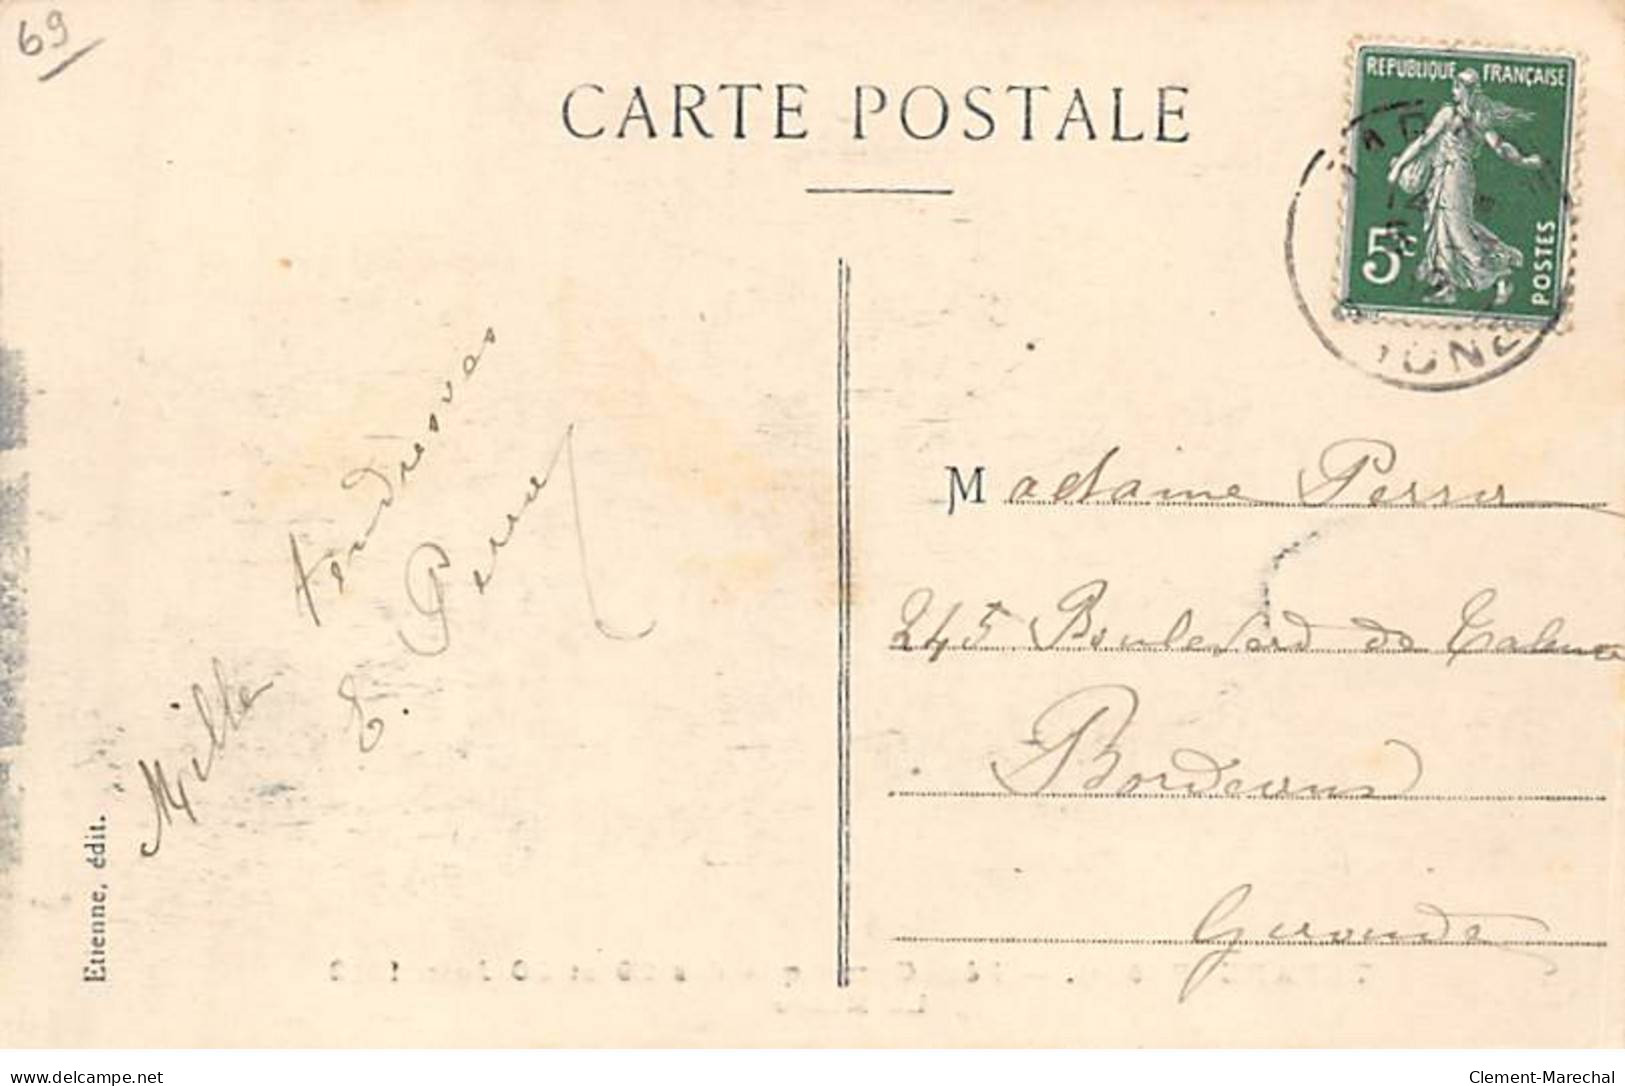 69
CARTE POSTALE
REPUBLIQUE FRANÇAISE
5c
POSTES
Mille tendresses
E. Perrer
Madame Perrer
245 Boulevard de Talence
Bordeaux
Gironde
Etienne, édit.
Clement-Marechal
https://www.delcampe.net